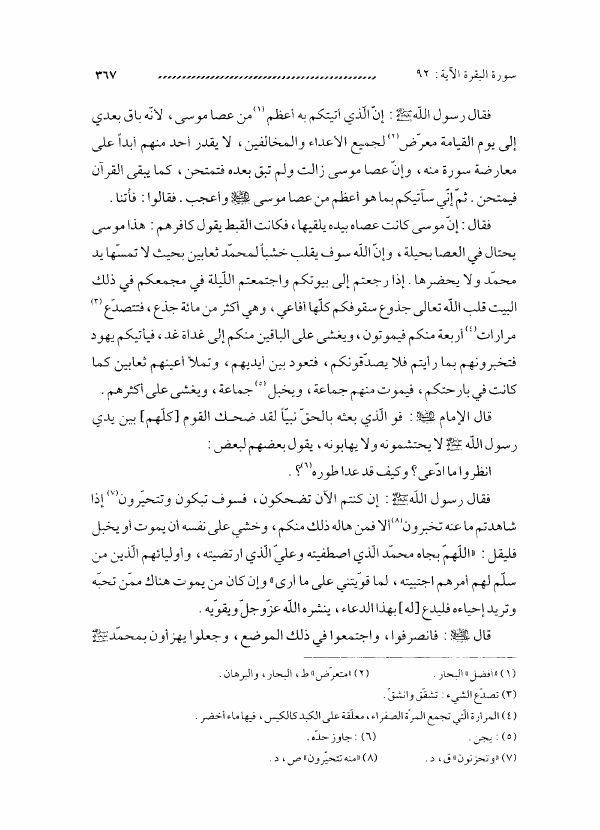 سورة البقرة الآية: ٩٢ ٣٦٧
فقال رسول اللّه ﷺ : إنّ الّذي أتيتكم به أعظم(١) من عصا موسى، لأنّه باق بعدي
إلى يوم القيامة معرّض(٢) لجميع الأعداء والمخالفين، لا يقدر أحد منهم أبداً على
معارضة سورة منه، وإنّ عصا موسى زالت ولم تبق بعده فتمتحن، كما يبقى القرآن
فيمتحن. ثمّ إنّي سآتيكم بما هو أعظم من عصا موسى ﷺ وأعجب. فقالوا: فأتنا.
فقال: إنّ موسى كانت عصاه بيده يلقيها، فكانت القبط يقول كافرهم: هذا موسى
يحتال في العصا بحيلة، وإنّ اللّه سوف يقلب خشباً لمحمّد ثعابين بحيث لا تمسّها يد
محمّد ولا يحضرها. إذا رجعتم إلى بيوتكم واجتمعتم اللّيلة في مجمعكم في ذلك
البيت قلب اللّه تعالى جذوع سقوفكم كلّها أفاعي، وهي أكثر من مائة جذع، فتتصدّع(٣)
مرارات(٤) أربعة منكم فيموتون، ويغشى على الباقين منكم إلى غداة غد، فيأتيكم يهود
فتخبرونهم بما رأيتم فلا يصدّقونكم، فتعود بين أيديهم، وتملأ أعينهم ثعابين كما
كانت في بارحتكم، فيموت منهم جماعة، ويخبل(٥) جماعة، ويغشى على أكثرهم.
قال الإمام ﷺ : فو الّذي بعثه بالحقّ نبيّاً لقد ضحك القوم [كلّهم] بين يدي
رسول اللّه ﷺ لا يحتشمونه ولا يهابونه، يقول بعضهم لبعض:
انظروا ما ادّعى؟ وكيف قد عدا طوره(٦)؟.
فقال رسول اللّه ﷺ : إن كنتم الآن تضحكون، فسوف تبكون وتتحيّرون(٧) إذا
شاهدتم ما عنه تخبرون(٨) ألا فمن هاله ذلك منكم، وخشي على نفسه أن يموت أو يخبل
فليقل: «اللّهمّ بجاه محمّد الّذي اصطفيته وعليّ الّذي ارتضيته، وأوليائهم الّذين من
سلّم لهم أمرهم اجتبيته، لما قوّيتني على ما أرى» وإن كان من يموت هناك ممّن تحبّه
وتريد إحياءه فليدع [له] بهذا الدعاء، ينشره اللّه عزّ وجلّ ويقوّيه.
قال ﷺ : فانصرفوا، واجتمعوا في ذلك الموضع، وجعلوا يهزأون بمحمّد ﷺ
(١) «أفضل» البحار. (٢) «متعرّض» ط، البحار، والبرهان.
(٣) تصدّع الشيء: تشقّق وانشقّ.
(٤) المرارة الّتي تجمع المرّة الصفراء، معلّقة على الكبد كالكيس، فيها ماء أخضر.
(٥) : يجن. (٦) : جاوز حدّه.
(٧) «وتحزنون» ق، د. (٨) «منه تتحيّرون» ص، د.